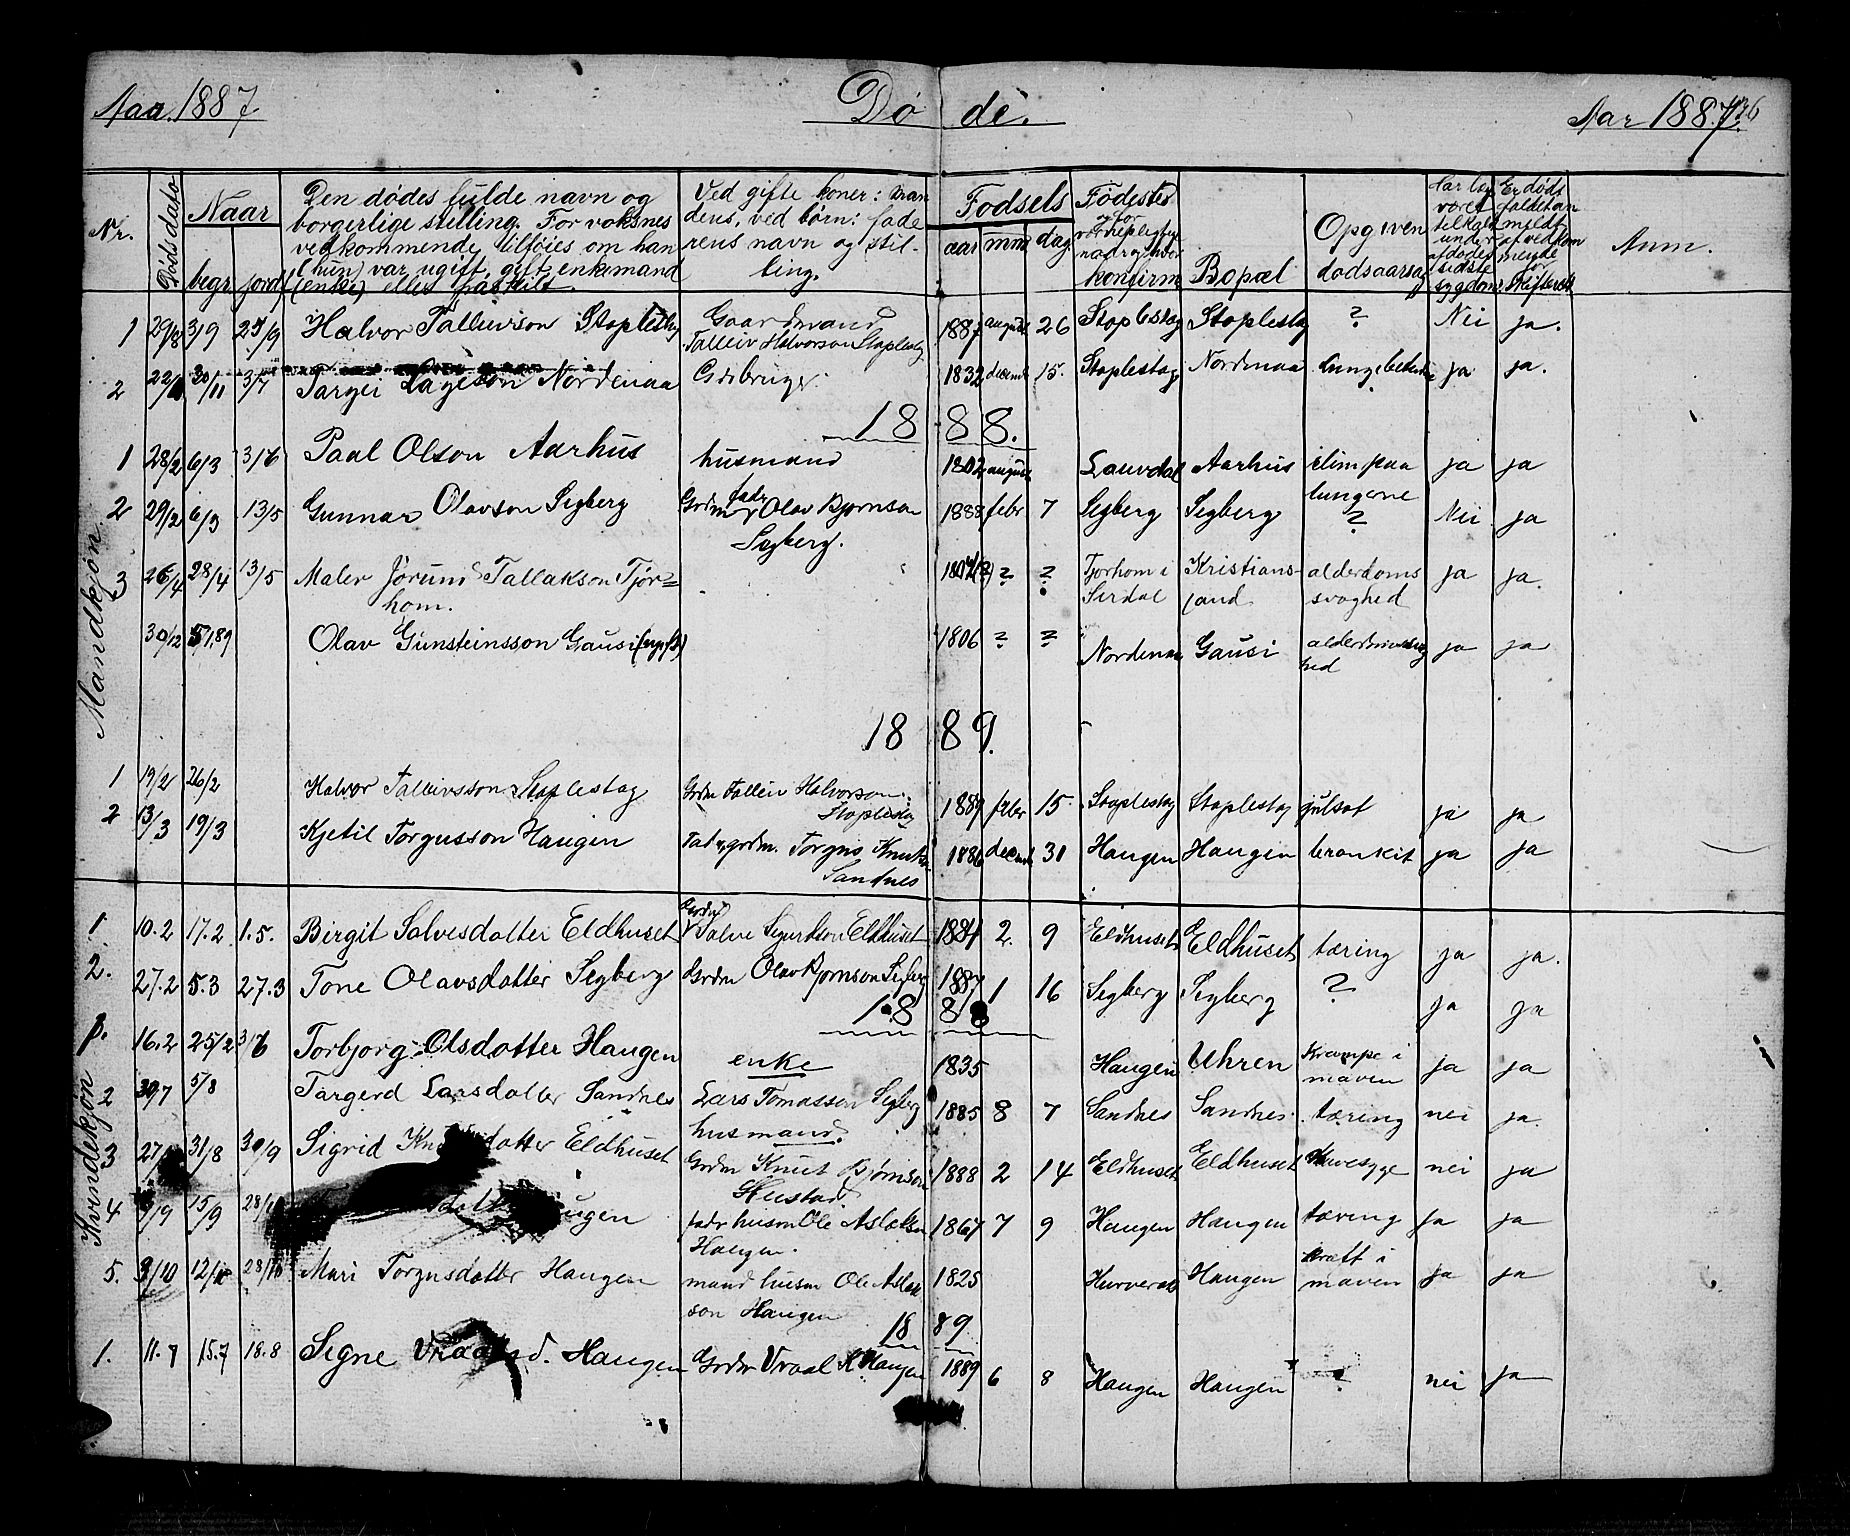 Aar 1887 Døde. Aar 1887. 136
Nr. Dødsdato Naar begr. jordf. Den dødes fulde navn og borgerlige stilling. For voksnes vedkommende tilføies om han (hun) var ugift, gift, enkemand (enke) eller fraskilt. Ved gifte koner: mandens, ved børn: faderens navn og stilling. Fødsels aar mnd dag. Fødested og for vernepligtige naar og hvor konfirm Bopæl Opgiven dødsaarsag Har læge været tilkaldt under afdødes sidste sygdom? Er dødsfaldet anmeldt af vedkommende for skifteret Anm.
Mandkjøn
1 29/8 3/9 25/9 Halvor Talleivson Stoplestøg Gaardmand Talleiv Halvorson Stoplestøg 1887 august 26 Stoplestøg Stoplestøg ? Nei ja.
2 22/11 30/11 3/7 Targei Lageson Nordenaa Gdsbruger 1832 decemb 15. Stoplestøg Nordenaa Lungebetend. ja ja.
1888.
1 28/2 6/3 3/6 Paal Olson Aarhus husmand 1802 august Lauvdal Aarhus slim paa lungerne ja ja
2 29/2 6/3 13/5 Gunnar Olavson Segberg Grdm fadr Olav Bjørnson Segberg. 1888 febr 7 Segberg Segberg ? Nei ja
3 26/4 28/4 13/5 Maler Jørund Tallakson Tjørhom. ? ? Tjorhom i Sirdal Kristianssand alderdomssvaghed ja ja.
30/12 5/1 89 Olav Gunsteinsson Gausi 1806 ? ? Nordenaa Gausi alderdomssvaghed ja ja
1889.
1 19/2 26/2 Halvor Talleivsson Stoplestøg Grdm Talleiv Halvorson Stoplestøg 1889 febr 15. Stoplestøg Stoplestøg gulsot ja ja
2 13/3 19/3 Kjetil Torgusson Haugen Fad. grdm. Torgus Knuts. Sandnes 1886 decemb 31 Haugen Haugen bronkit ja ja
Kvindekjøn
1. 10.2 17.2 1.5. Birgit Salvesdatter Eldhuset Grdm Salve Sigurdson Eldhuset 1884 2. 9 Eldhuset Eldhuset tæring ja ja.
2. 27.2 5.3 27.3 Tone Olavsdatter Segberg Grdm Olav Bjørnson Segberg 1887 1 16 Segberg Segberg ? ja ja
1888
1. 16.2 25/2 3/6 Torbjorg Olsdatter Haugen enke 1835 Haugen Uhren Krampe i maven ja ja
2 30/7 5/8 Targerd Larsdatter Sandnes Lars Tomasson Segberg husmand. 1885 8 7 Sandnes Sandnes. tæring nei ja.
3 27/ 31/8 30/9 Sigrid datter Eldhuset Grdm Knut Bjørnson Heistad 1888 2 14 Eldhuset Eldhuset nei ja
4 9/9 15/9 Haugen fadr husm Ole Aslakson Haugen. 1867 7 9 Haugen Haugen tæring ja ja
5. 9/10 Mari Torgusdatter Haugen mand husm Ole Aslakson Haugen 1825 Haugen kræft i maven ja ja
1889
1. 11.7 15.7 18.8 Segne d. Haugen Grdm Vraal K Haugen 1889 6 8 Haugen Haugen ? nei ja